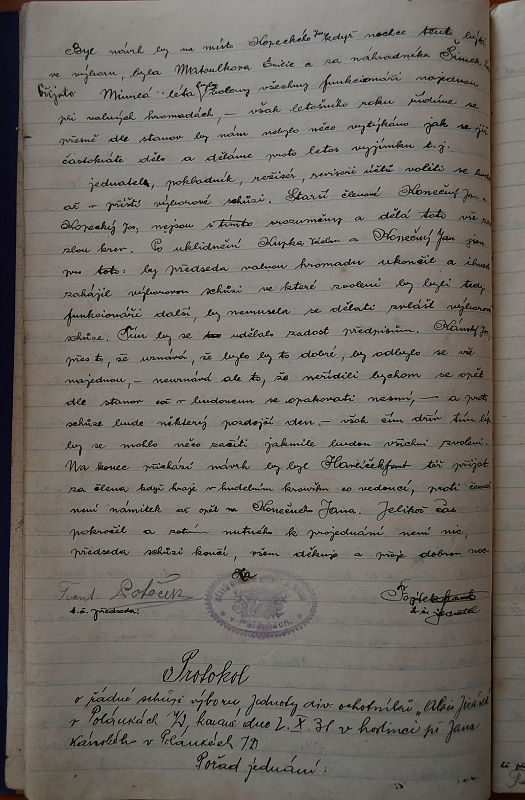 Byl návrh by na místo Kopeckého Jos. když nechce tento býti
ve výboru, byla Matoulkova Emilie a za náhradníka Šimek
přijato. Minulá léta byly voleny všechny funkcionáři najednou
při valných hromadách, — však letošního roku řídíme se
přesně dle stanov by nám nebylo něco vytýkáno jak se již
častokráte dělo a děláme proto letos vyjímku t. j.
jednatele, pokladník, režisér, revisoři účtů voliti se bude
až v příští výborové schůzi. Starší členové Konečný Jan a
Kopecký Jos. nejsou s tímto srozuměny a dělá toto vše
zlou krev. Po uklidnění Kupka Václav a Konečný Jan jsou
pro toto: by předseda valnou hromadu ukončil a ihned
zahájil výborovou schůzi ve které zvoleni by byli tedy
funkcionáři další, by nemusela se dělati zvlášť výborová
schůze. Tím by se udělalo zadost předpisům. Kánský Jos.
přes to, že uznává, že bylo by to dobré, by odbylo se vše
najednou, — neuznává ale to, že neřídili bychom se opět
dle stanov což v budoucnu se opakovati nesmí, — a proto
schůze bude některý pozdější den. — však čím dřív tím líp
by se mohlo něco začíti jakmile budou všichni zvoleni.
Na konec přichází návrh by byl Havlíček frant též přijat
za člena když hraje v hudebním kroužku co vedoucí, proti čemuž
není námitek až opět na Konečného Jana. Jelikož čas
pokročil a nutného k projednání není nic,
předseda schůzi končí, všem děkuje a přeje dobrou noc
Za
Frant.
t. č. předseda.
Vojtek
t. č. jednatel
Protokol
o řádné schůzi výboru, Jednoty div ochotníků „Alois Jirásek
v Polánkách konané dne 2. X. 31 v hostinci př Jana
v Polánkách
Pořad jednání: